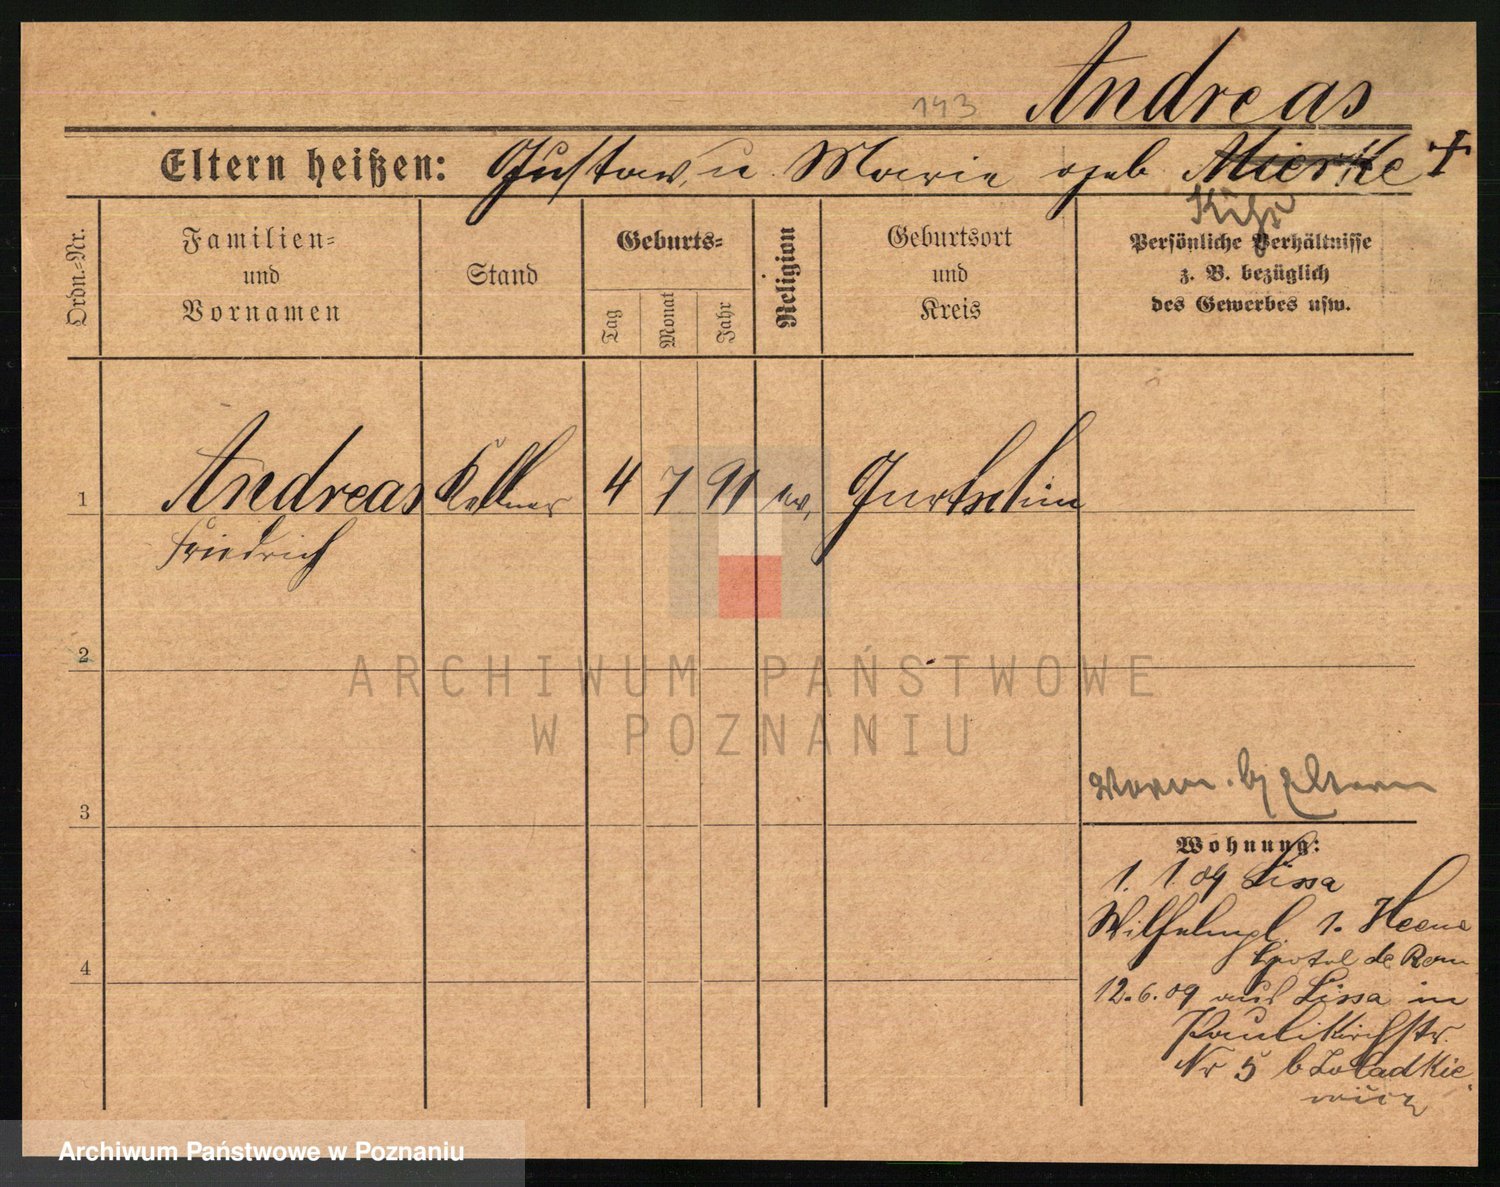 193
Andreas
Eltern heißen: Gustav u. Marie geb. Mierke +
Kihr
Ordn.=Nr.
Familien=
und
Vornamen
Stand
Geburts=
Tag
Monat
Jahr
Religion
Geburtsort
und
Kreis
Persönliche Verhältnisse
z. B. bezüglich
des Gewerbes usw.
1 Andreas Kellner 4 7 91 ev. Gurtschin
Friedrich
2
3
4
ARCHIWUM PAŃSTWOWE
W POZNANIU
Eltern
Wohnung:
1. 1. 09 Lissa
Wilhelmpl. 1.
Hotel de Rom
12. 6. 09 aus Lissa in
Paulikirchstr.
Nr 5 b
Archiwum Państwowe w Poznaniu